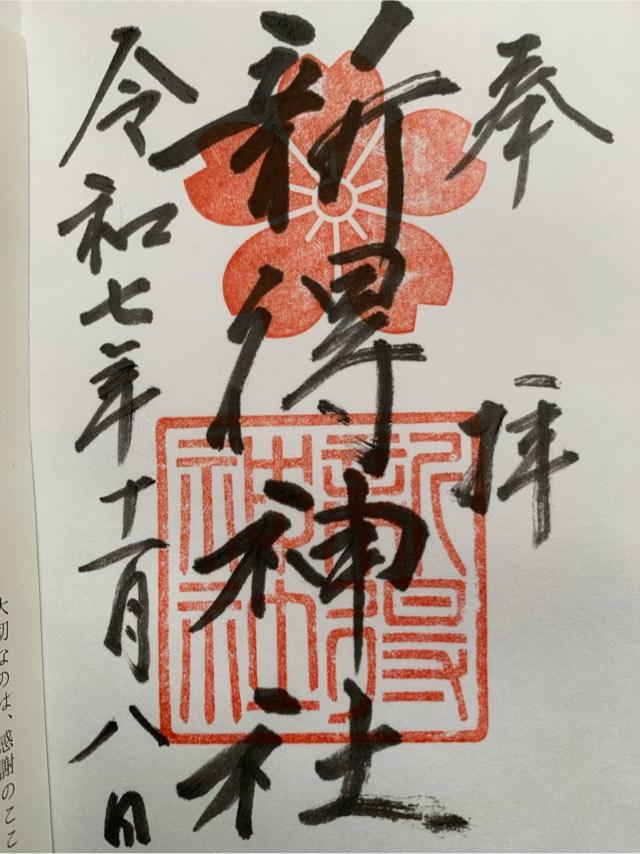 奉拝
新得神社
新得
神社
令和七年十一月八日
大切なのは、感謝のここ